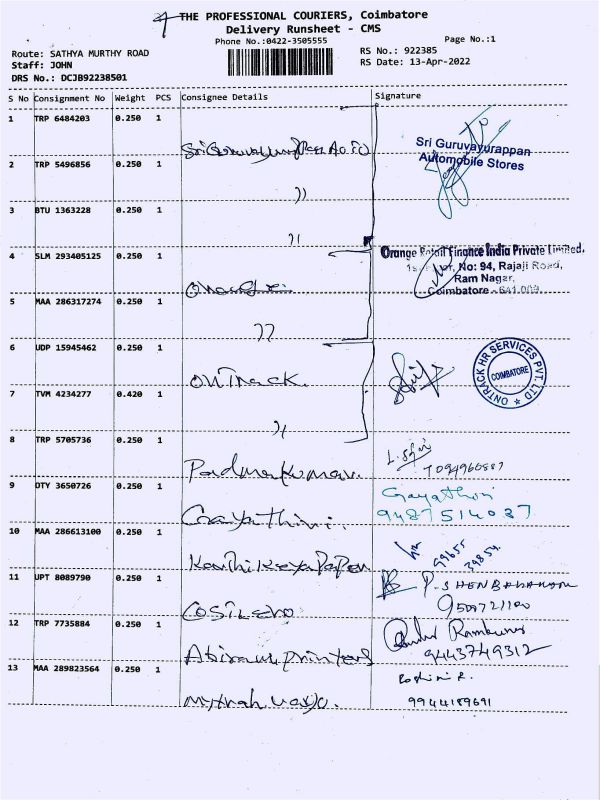 THE PROFESSIONAL COURIERS, Coimbatore
Delivery Runsheet - CMS
Phone No.:0422-3505555
Page No.:1
Route: SATHYA MURTHY ROAD
Staff: JOHN
DRS No.: DCJB92238501
RS No.: 922385
RS Date: 13-Apr-2022
S No Consignment No Weight PCS Consignee Details Signature
1 TRP 6484203 0.250 1
Sri Guruvayurappan
Automobile Stores
2 TRP 5496856 0.250 1
3 BTU 1363228 0.250 1
4 SLM 293405125 0.250 1
Orange Retail Finance India Private Limited.
No: 94, Rajaji Road,
Ram Nagar,
Coimbatore
5 MAA 286317274 0.250 1
6 UDP 15945462 0.250 1
ONTrack
ONTRACK HR SERVICES PVT. LTD
COIMBATORE
7 TVM 4234277 0.420 1
8 TRP 5705736 0.250 1
Padmakumar.
9 DTY 3650726 0.250 1
Gayathiri.
Gayathiri
9487514037
10 MAA 286613100 0.250 1
11 UPT 8089790 0.250 1
12 TRP 7735884 0.250 1
Abirami printers
9443749312
13 MAA 289823564 0.250 1
9944189691